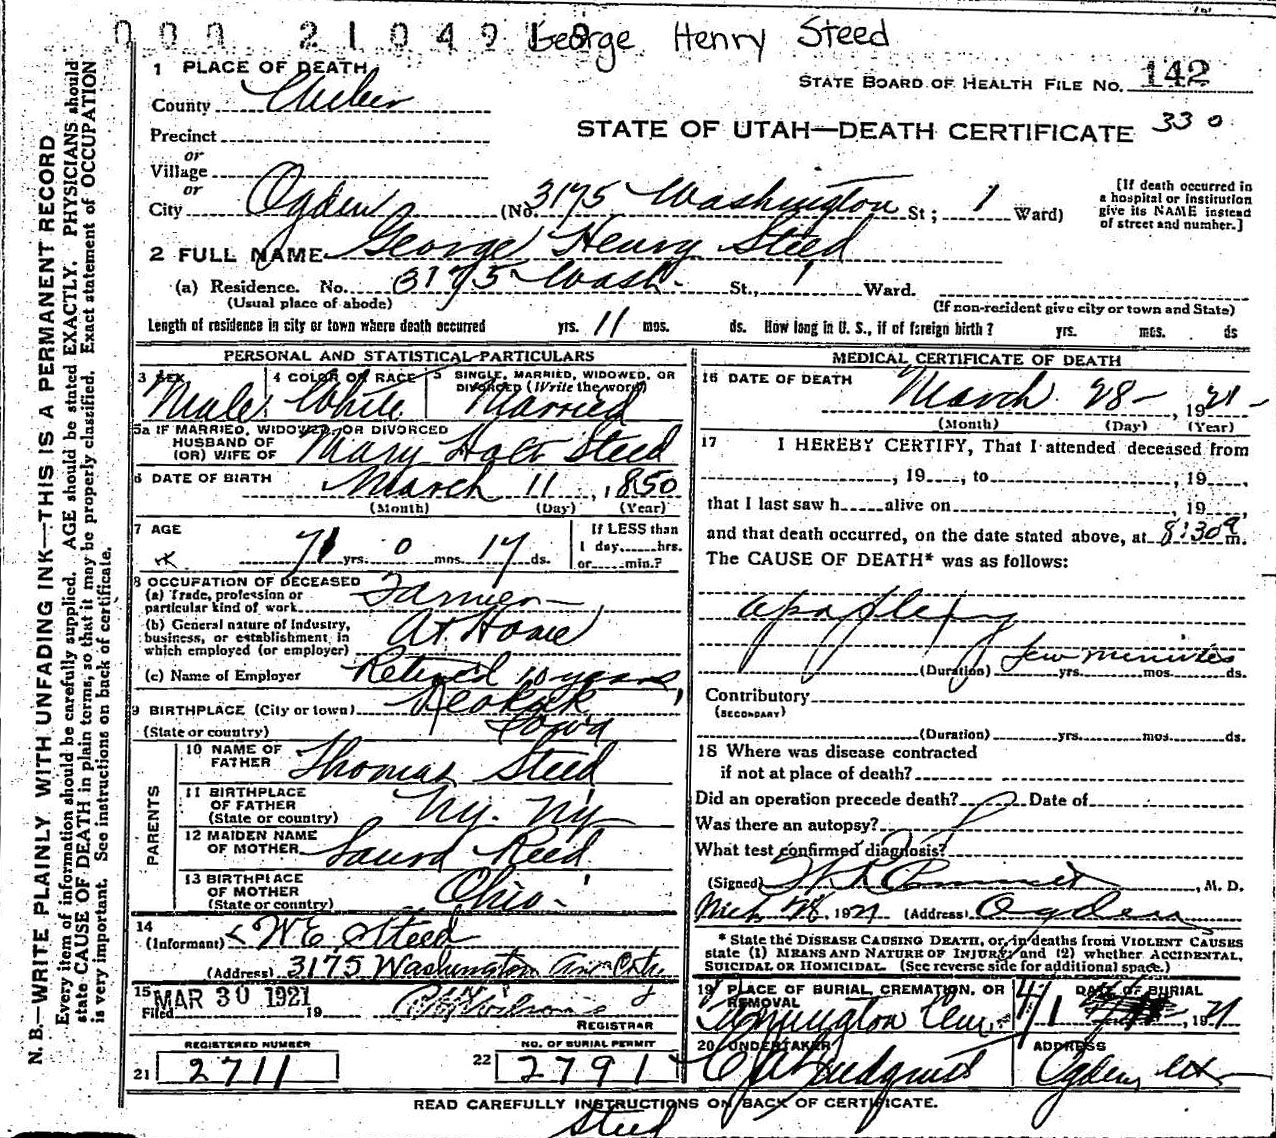 000 2104910 George Henry Steed
1 PLACE OF DEATH
STATE BOARD OF HEALTH FILE NO. 142
County Weber
330
Precinct
STATE OF UTAH—DEATH CERTIFICATE
or
Village
or
City Ogden (No. 3175 Washington St; 1 Ward)
[If death occurred in
a hospital or institution
give its NAME instead
of street and number.]
2 FULL NAME George Henry Steed
(a) Residence. No. 3175 Wash. St., 1 Ward.
(Usual place of abode)
(If non-resident give city or town and State)
Length of residence in city or town where death occurred yrs. 11 mos. ds. How long in U. S., if of foreign birth? yrs. mos. ds
PERSONAL AND STATISTICAL PARTICULARS
3 SEX
Male
4 COLOR OR RACE
White
5 SINGLE, MARRIED, WIDOWED, OR
DIVORCED (Write the word)
Married
5a IF MARRIED, WIDOWED, OR DIVORCED
HUSBAND OF
(OR) WIFE OF Mary Steed
6 DATE OF BIRTH March 11, 1850
(Month) (Day) (Year)
7 AGE
71 yrs. 0 mos. 17 ds.
If LESS than
1 day,......hrs.
or......min.?
8 OCCUPATION OF DECEASED
(a) Trade, profession or
particular kind of work Farmer
(b) General nature of Industry,
business, or establishment in
which employed (or employer) At Home
(c) Name of Employer Retired 10 years
9 BIRTHPLACE (City or town) Keokuk,
(State or country) Iowa
PARENTS
10 NAME OF
FATHER Thomas Steed
11 BIRTHPLACE
OF FATHER
(State or country) Ny. Ny
12 MAIDEN NAME
OF MOTHER Laura Reed
13 BIRTHPLACE
OF MOTHER
(State or country) Ohio.
14
(Informant) W E Steed
(Address) 3175 Washington Ave City
15 MAR 30 1921
Filed 19
REGISTRAR
REGISTERED NUMBER
21 2711
NO. OF BURIAL PERMIT
22 2791
MEDICAL CERTIFICATE OF DEATH
16 DATE OF DEATH
March 28-, 1921-
(Month) (Day) (Year)
17 I HEREBY CERTIFY, That I attended deceased from
, 19...., to , 19....,
that I last saw h.....alive on , 19....,
and that death occurred, on the date stated above, at 8:30 a m.
The CAUSE OF DEATH* was as follows:
apoplexy
(Duration) few minutes yrs. mos. ds.
Contributory
(SECONDARY)
(Duration) yrs. mos. ds.
18 Where was disease contracted
if not at place of death?
Did an operation precede death? Date of
Was there an autopsy?
What test confirmed diagnosis?
(Signed) , M. D.
Mch 28, 1921 (Address) Ogden
* State the DISEASE CAUSING DEATH, or, in deaths from VIOLENT CAUSES
state (1) MEANS AND NATURE OF INJURY; and (2) whether ACCIDENTAL,
SUICIDAL OR HOMICIDAL. (See reverse side for additional space.)
19 PLACE OF BURIAL, CREMATION, OR
REMOVAL
Farmington Cem.
DATE OF BURIAL
4/1, 1921
20 UNDERTAKER
Lindquist
ADDRESS
Ogden, Ut
READ CAREFULLY INSTRUCTIONS ON BACK OF CERTIFICATE.
Steed
N. B.—WRITE PLAINLY WITH UNFADING INK—THIS IS A PERMANENT RECORD
Every item of information should be carefully supplied. AGE should be stated EXACTLY. PHYSICIANS should
state CAUSE OF DEATH in plain terms, so that it may be properly classified. Exact statement of OCCUPATION
is very important. See instructions on back of certificate.